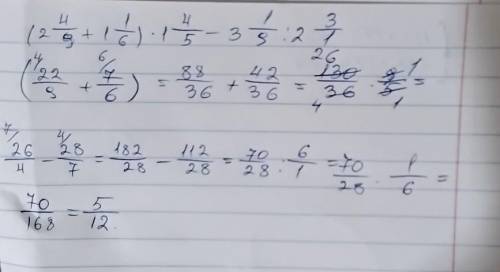 (2 4/9 + 1 1/6) · 1 4/5 − 3 1/9 : 2 3/1
(4/ 22/9 + 6/ 7/6) = 88/36 + 42/36 = 26 130/36 4 · 9/5 1 1 =
7/ 26/4 − 4/ 28/7 = 182/28 − 112/28 = 70/28 : 6/1 = 70/28 · 1/6 =
70/168 = 5/12.